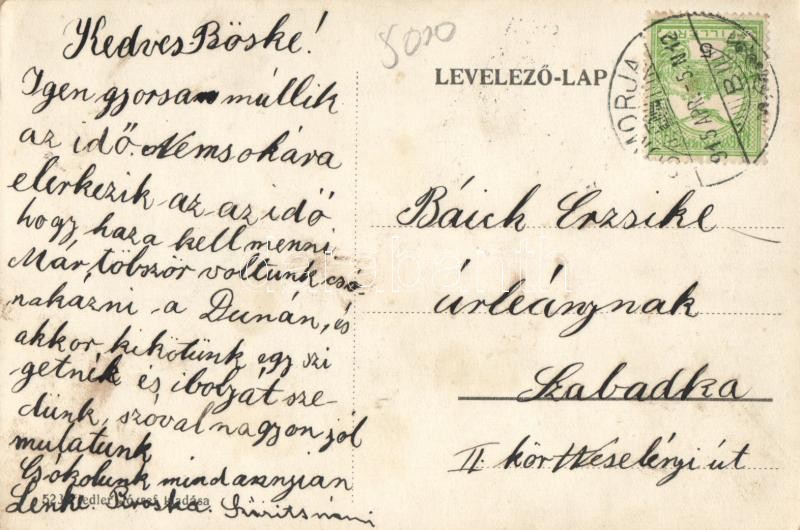 Kedves Böske!
Igen gyorsan múllik
az idő. Nemsokára
elerkezik az az idő
hogy haza kell menni
Már töbször voltunk csó
nakázni a Dunán, és
akkor kikötünk egy szi
getnél és ibolyát sze
dünk, szóval nagyon jól
mulatunk
Csókolunk mindannyian
Lenke. Broska.
5000
LEVELEZŐ-LAP
Báick Erzsike
úrleánynak
Szabadka
II kör Weselényi út